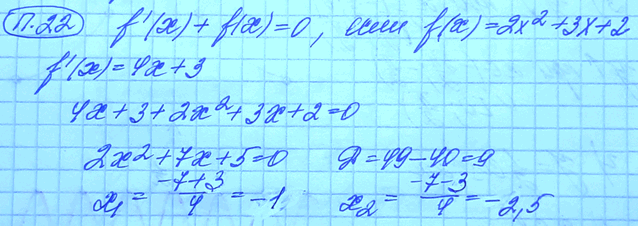 П.22 f'(x) + f(x) = 0, если f(x) = 2x² + 3x + 2
f'(x) = 4x + 3
4x + 3 + 2x² + 3x + 2 = 0
2x² + 7x + 5 = 0 D = 49 - 40 = 9
x₁ = (-7+3)/4 = -1 x₂ = (-7-3)/4 = -2,5